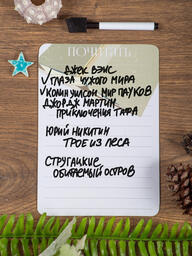 ПОЧИТАТЬ
ДЖЕК ВЭНС
✓ГЛАЗА ЧУЖОГО МИРА
✓КОЛИН УИЛСОН МИР ПАУКОВ
ДЖОРДЖ МАРТИН
ПРИКЛЮЧЕНИЯ ТАФА
ЮРИЙ НИКИТИН
ТРОЕ ИЗ ЛЕСА
СТРУГАЦКИЕ
ОБИТАЕМЫЙ ОСТРОВ